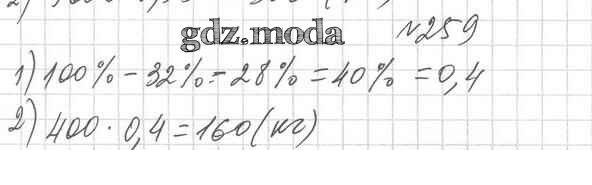 gdz.moda
№259
1) 100% - 32% - 28% = 40% = 0,4
2) 400 · 0,4 = 160 (кг)